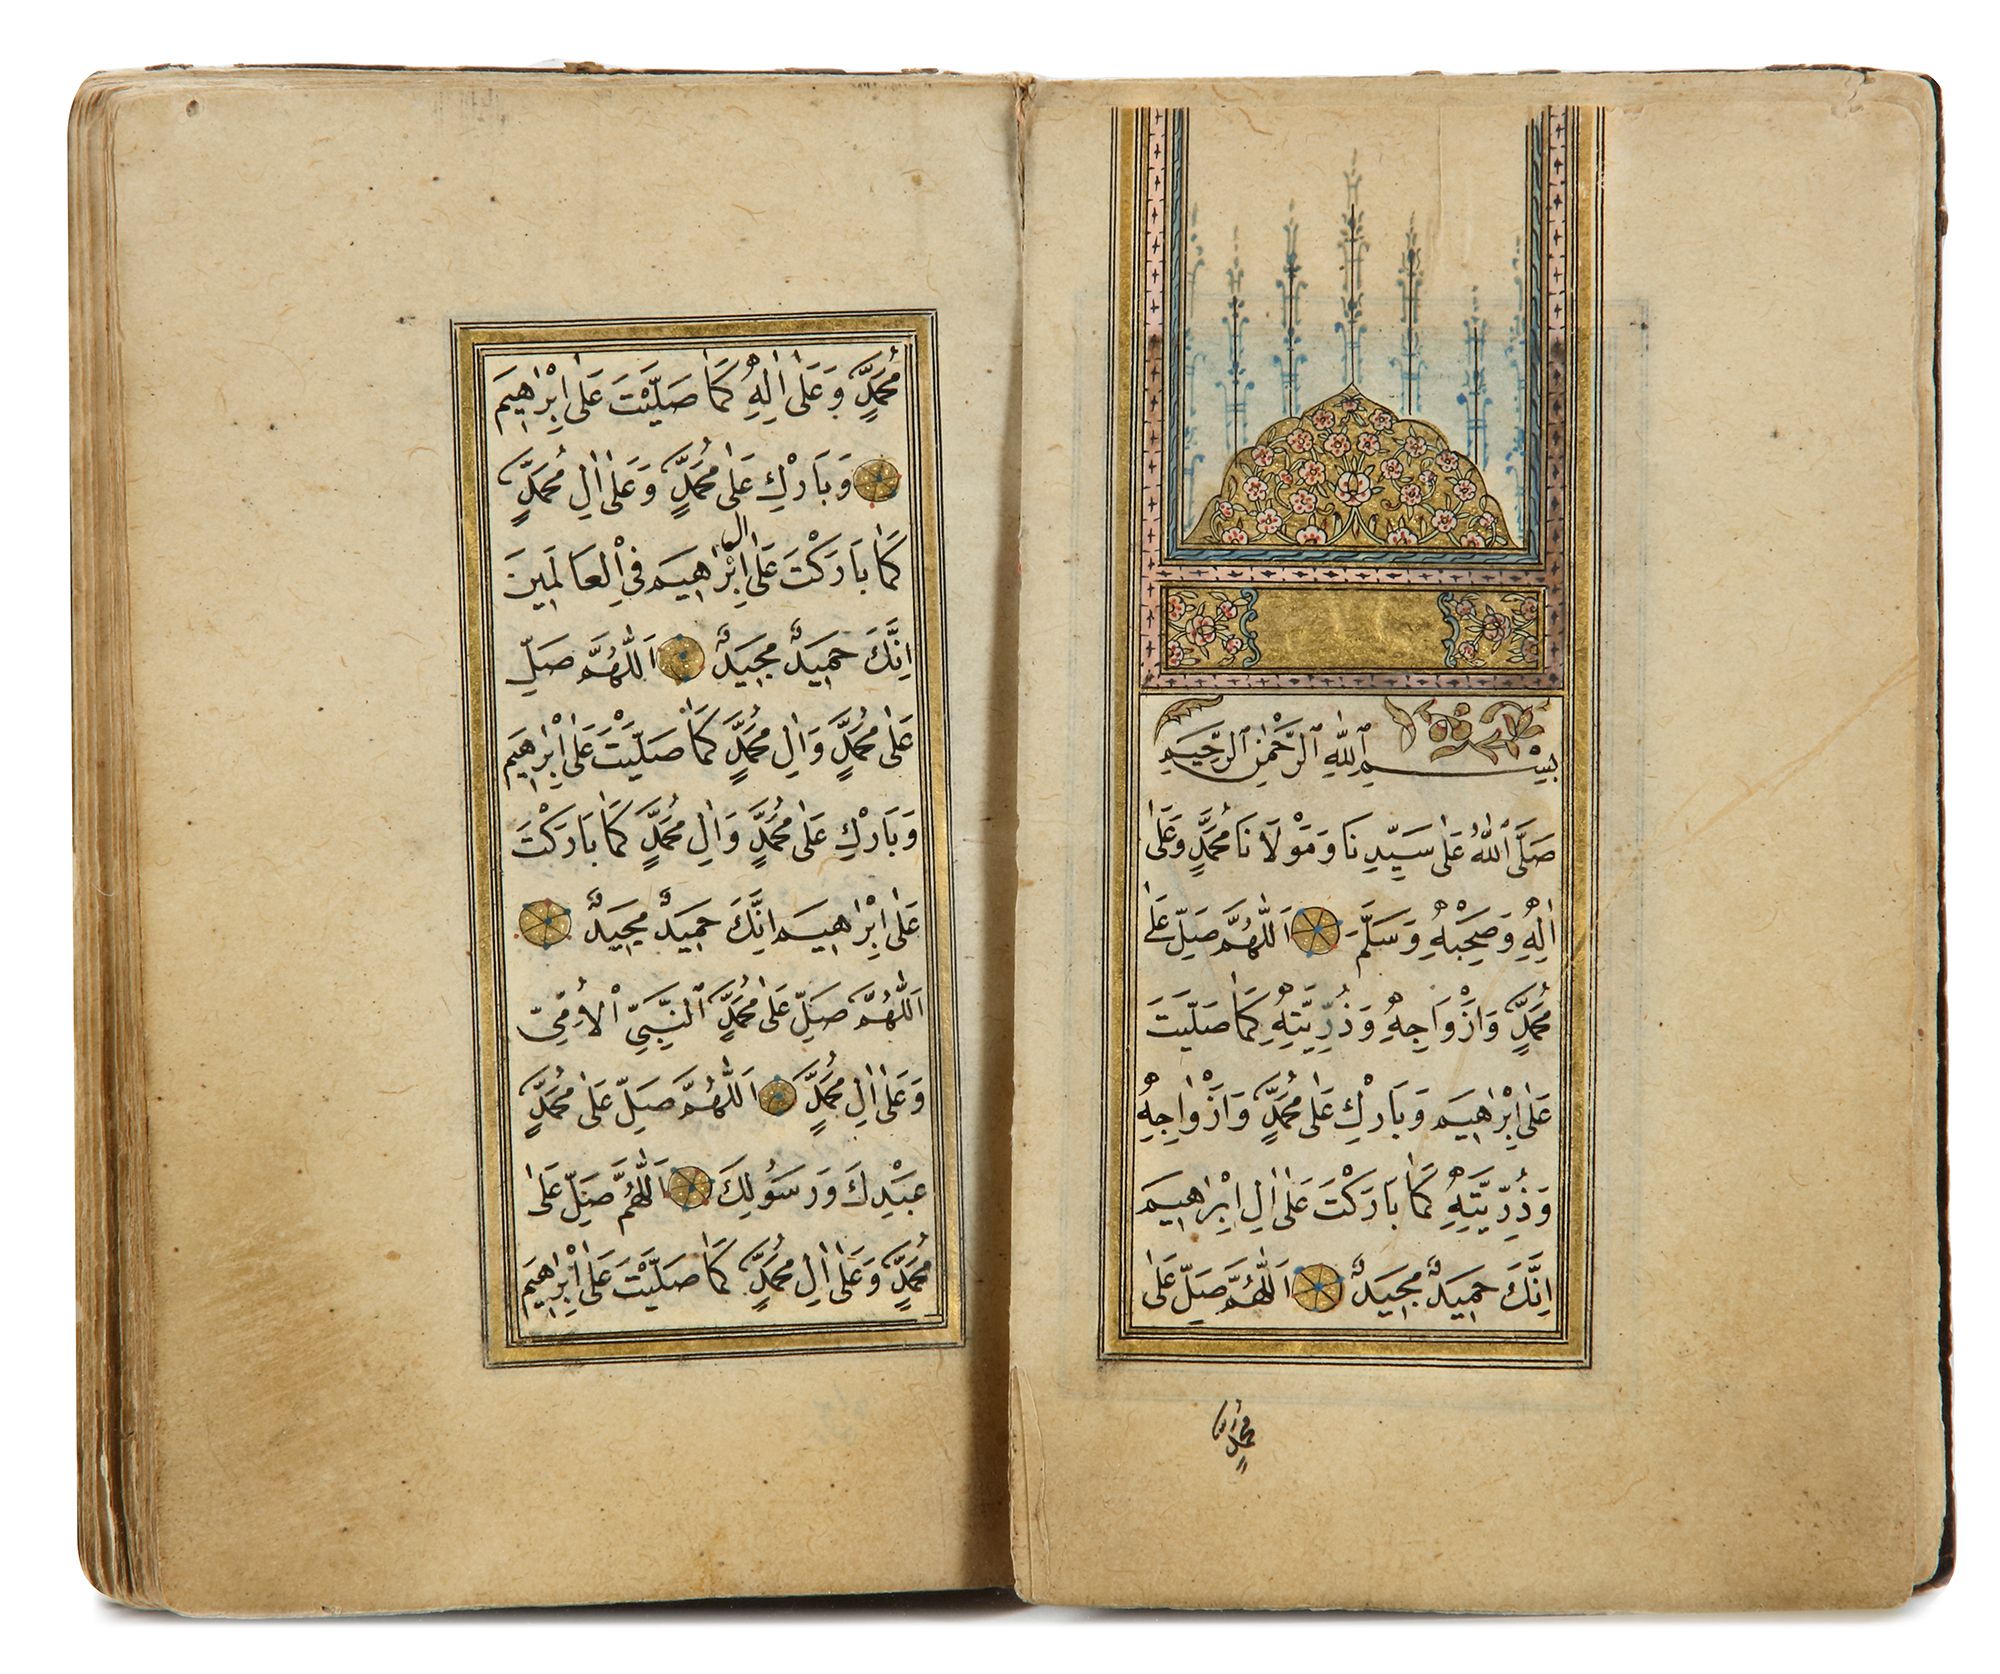 بِسْمِ ٱللّٰهِ ٱلرَّحْمٰنِ ٱلرَّحِيمِ
صَلَّى ٱللّٰهُ عَلٰى سَيِّدِنَا وَمَوْلَانَا مُحَمَّدٍ وَعَلٰى
اٰلِهِ وَصَحْبِهِ وَسَلَّمَ اَللّٰهُمَّ صَلِّ عَلٰى
مُحَمَّدٍ وَاَزْوَاجِهِ وَذُرِّيَّتِهِ كَمَا صَلَّيْتَ
عَلٰى اِبْرٰاهِيمَ وَبَارِكْ عَلٰى مُحَمَّدٍ وَاَزْوَاجِهِ
وَذُرِّيَّتِهِ كَمَا بَارَكْتَ عَلٰى اٰلِ اِبْرٰاهِيمَ
اِنَّكَ حَمِيدٌ مَجِيدٌ اَللّٰهُمَّ صَلِّ عَلٰى
مُحَمَّدٍ وَ
مُحَمَّدٍ وَعَلٰى اٰلِهِ كَمَا صَلَّيْتَ عَلٰى اِبْرٰاهِيمَ
وَبَارِكْ عَلٰى مُحَمَّدٍ وَعَلٰى اٰلِ مُحَمَّدٍ
كَمَا بَارَكْتَ عَلٰى اٰلِ اِبْرٰاهِيمَ فِي الْعَالَمِينَ
اِنَّكَ حَمِيدٌ مَجِيدٌ اَللّٰهُمَّ صَلِّ
عَلٰى مُحَمَّدٍ وَاٰلِ مُحَمَّدٍ كَمَا صَلَّيْتَ عَلٰى اِبْرٰاهِيمَ
وَبَارِكْ عَلٰى مُحَمَّدٍ وَاٰلِ مُحَمَّدٍ كَمَا بَارَكْتَ
عَلٰى اِبْرٰاهِيمَ اِنَّكَ حَمِيدٌ مَجِيدٌ
اَللّٰهُمَّ صَلِّ عَلٰى مُحَمَّدٍ ٱلنَّبِيِّ الْاُمِّيِّ
وَعَلٰى اٰلِ مُحَمَّدٍ اَللّٰهُمَّ صَلِّ عَلٰى مُحَمَّدٍ
عَبْدِكَ وَرَسُولِكَ اَللّٰهُمَّ صَلِّ عَلٰى
مُحَمَّدٍ وَعَلٰى اٰلِ مُحَمَّدٍ كَمَا صَلَّيْتَ عَلٰى اِبْرٰاهِيمَ